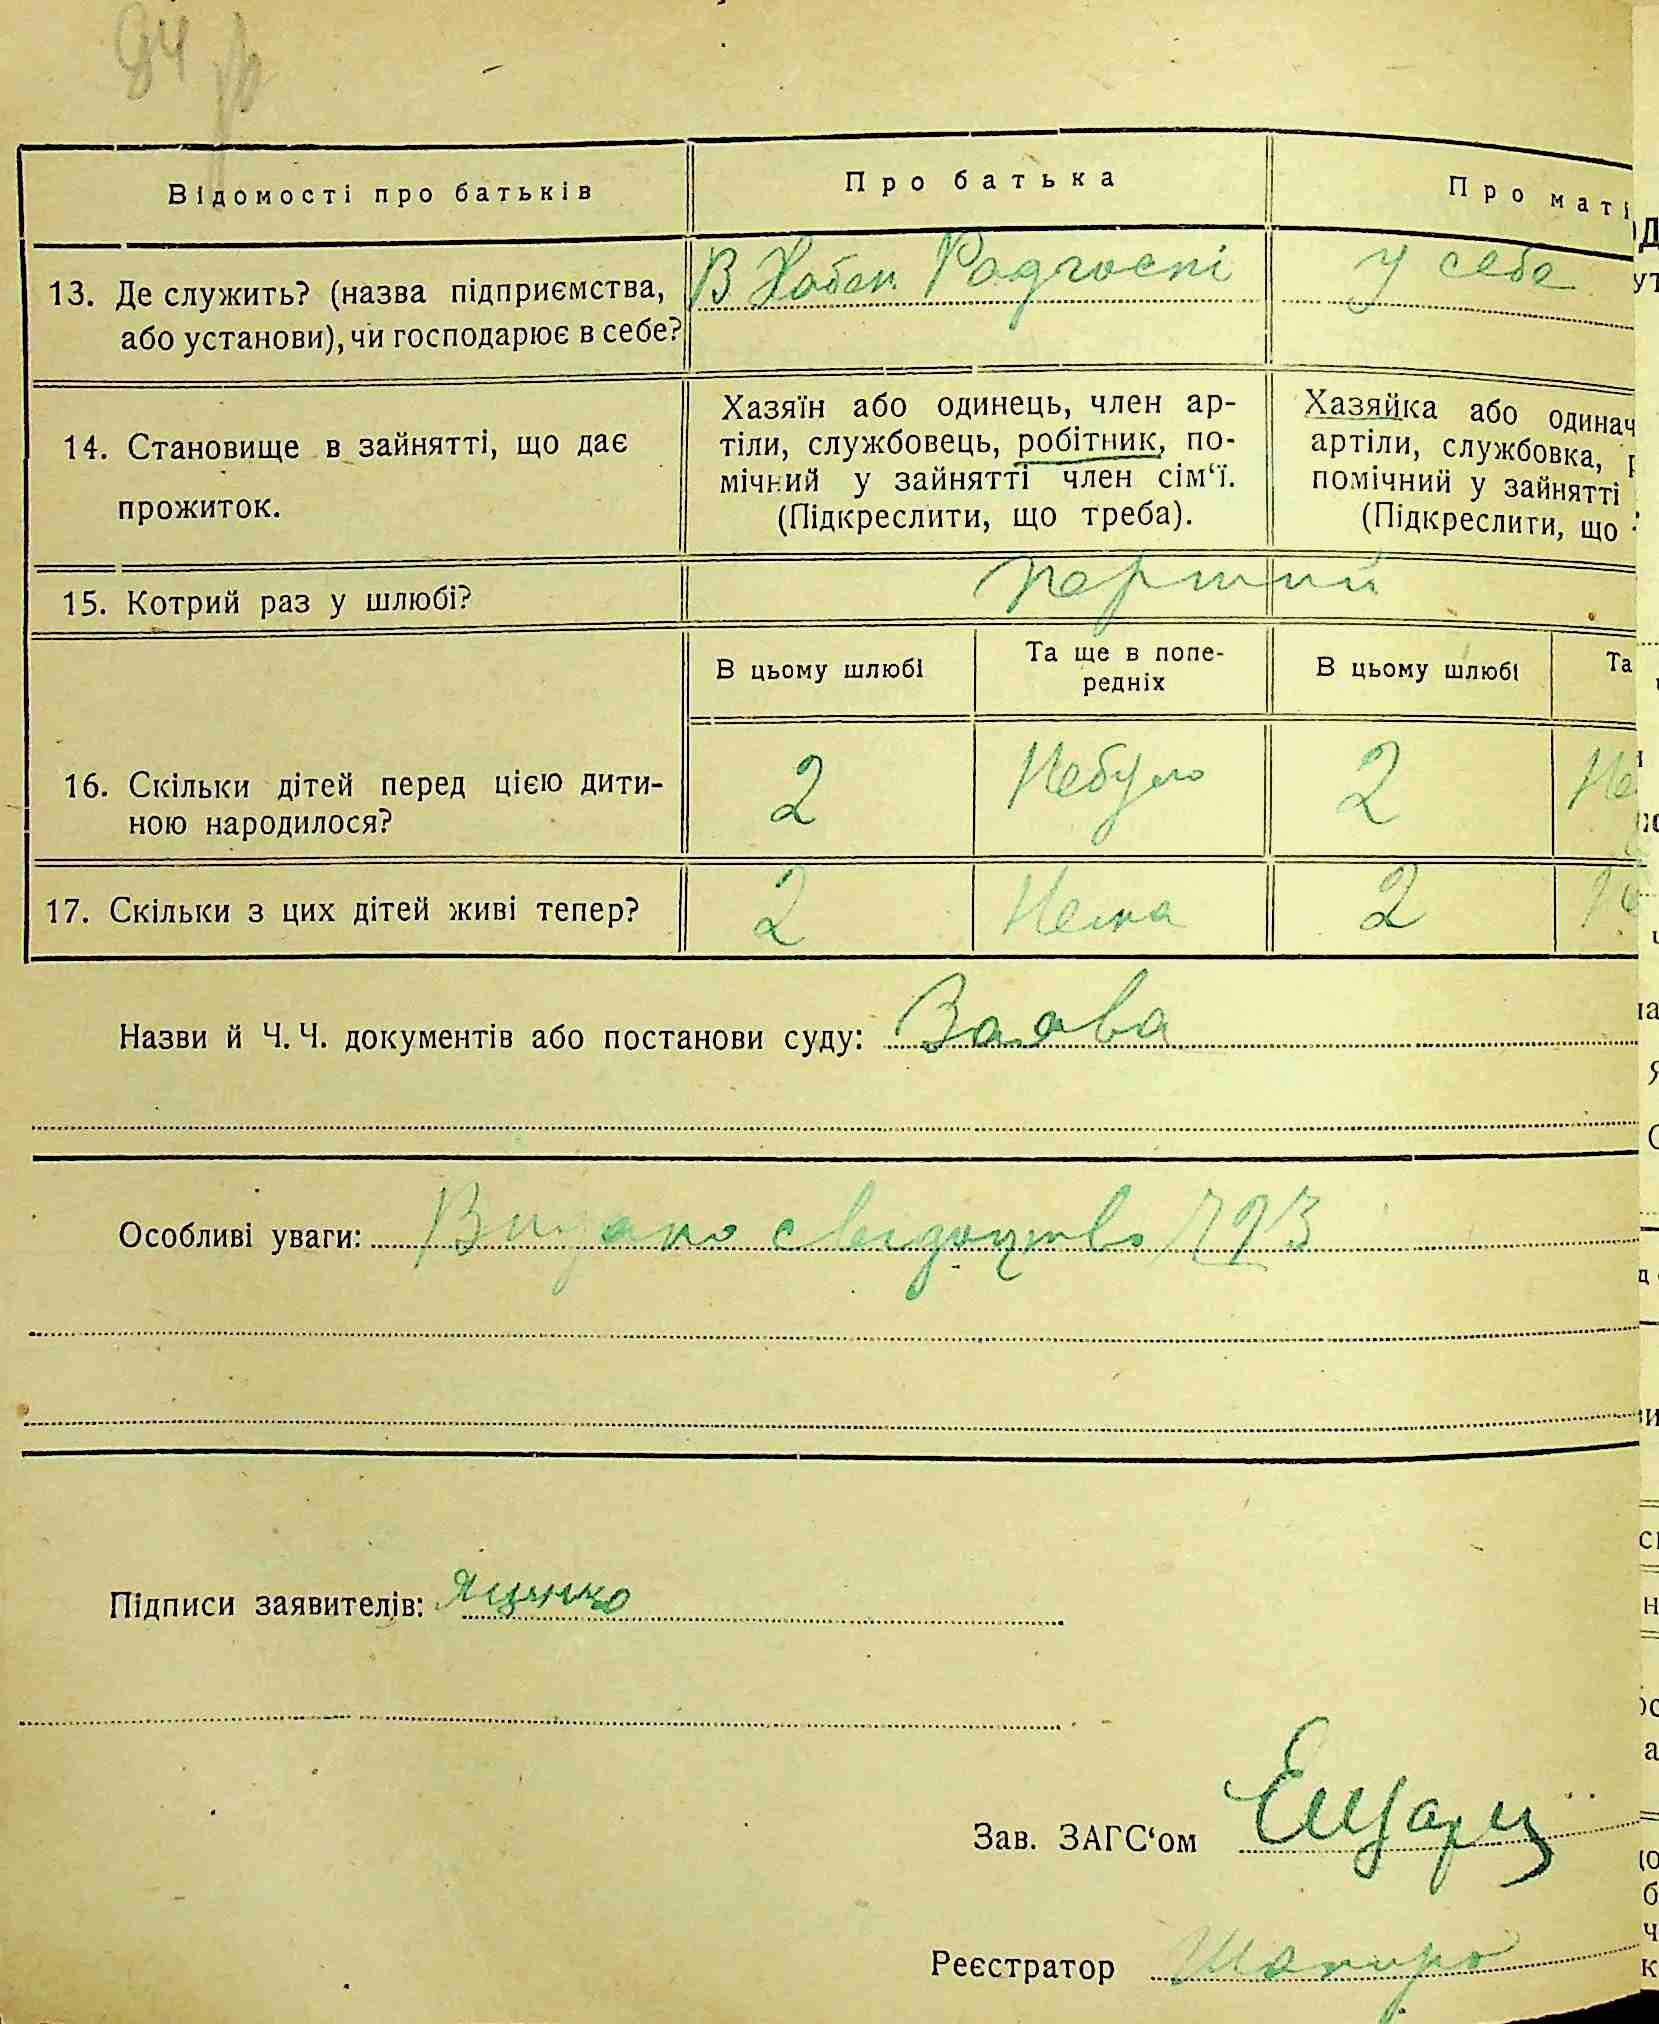 94
Відомості про батьків
Про батька
Про маті
13. Де служить? (назва підприємства,
або установи), чи господарює в себе?
В Хабен. Радгоспі
у себе
14. Становище в зайнятті, що дає
прожиток.
Хазяїн або одинець, член ар-
тіли, службовець, робітник, по-
мічний у зайнятті член сім‘ї.
(Підкреслити, що треба).
Хазяйка або одинач
артіли, службовка,
помічний у зайнятті
(Підкреслити, що
15. Котрий раз у шлюбі?
перший
В цьому шлюбі
Та ще в попе-
редніх
В цьому шлюбі
Та
16. Скільки дітей перед цією дити-
ною народилося?
2
Небуло
2
Не
17. Скільки з цих дітей живі тепер?
2
Нема
2
Не
Назви й Ч. Ч. документів або постанови суду: Заява
Особливі уваги: Видано свидоцтво 793
Підписи заявителів: Яценко
Зав. ЗАГС‘ом
Реєстратор Шапиро